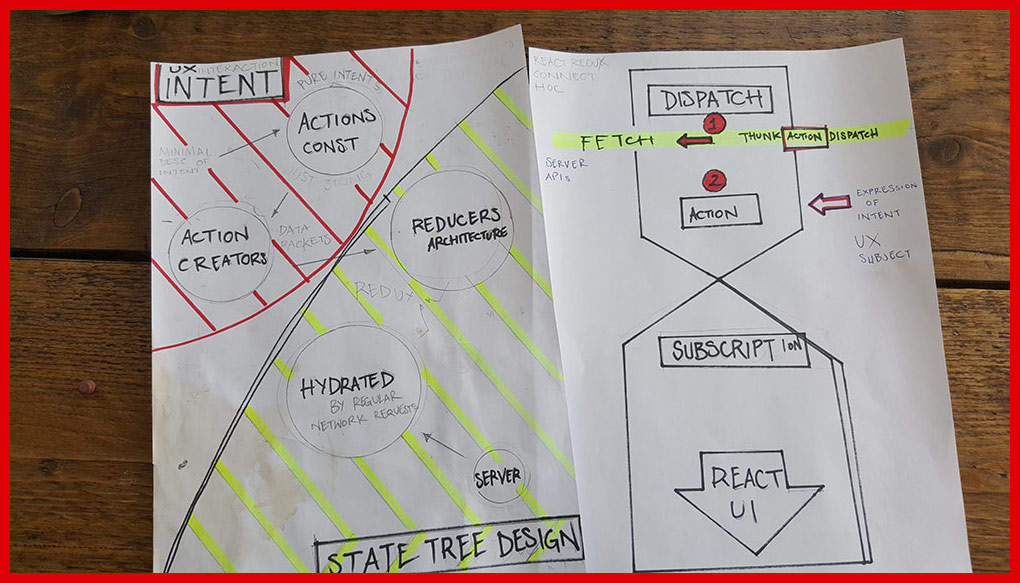 UX INTERACTION
INTENT
PURE INTENTS
ACTIONS
CONST
MINIMAL
DESC OF
INTENT
JUST STRING
ACTION
CREATORS
DATA
PACKETS
REDUCERS
ARCHITECTURE
REDUX
HYDRATED
BY REGULAR
NETWORK REQUESTS
SERVER
STATE TREE DESIGN
REACT REDUX
CONNECT
HOC
DISPATCH
1
FETCH
THUNK ACTION DISPATCH
SERVER
APIs
2
ACTION
EXPRESSION
OF
INTENT
UX
SUBJECT
SUBSCRIPTION
REACT
UI